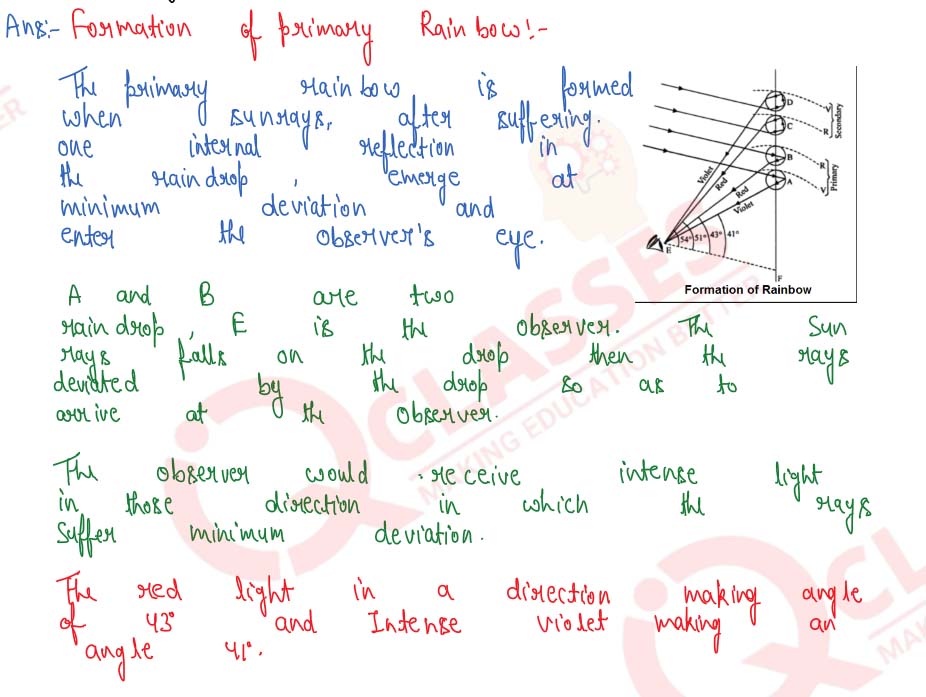 Ans:- Formation of primary Rainbow:-
The primary rainbow is formed
when sunrays, after suffering.
one internal reflection in
the raindrop, emerge at
minimum deviation and
enter the observer's eye.
D
C
B
A
Violet
Red
Red
Violet
V
R
Secondary
R
V
Primary
E
54° 51° 43° 41°
F
Formation of Rainbow
A and B are two
raindrop, E is the observer. The Sun
rays falls on the drop then the rays
deviated by the drop so as to
arrive at the observer.
The observer would receive intense light
in those direction in which the rays
suffer minimum deviation.
The red light in a direction making angle
of 43° and Intense violet making an
angle 41°.
IQ CLASSES
MAKING EDUCATION BETTER